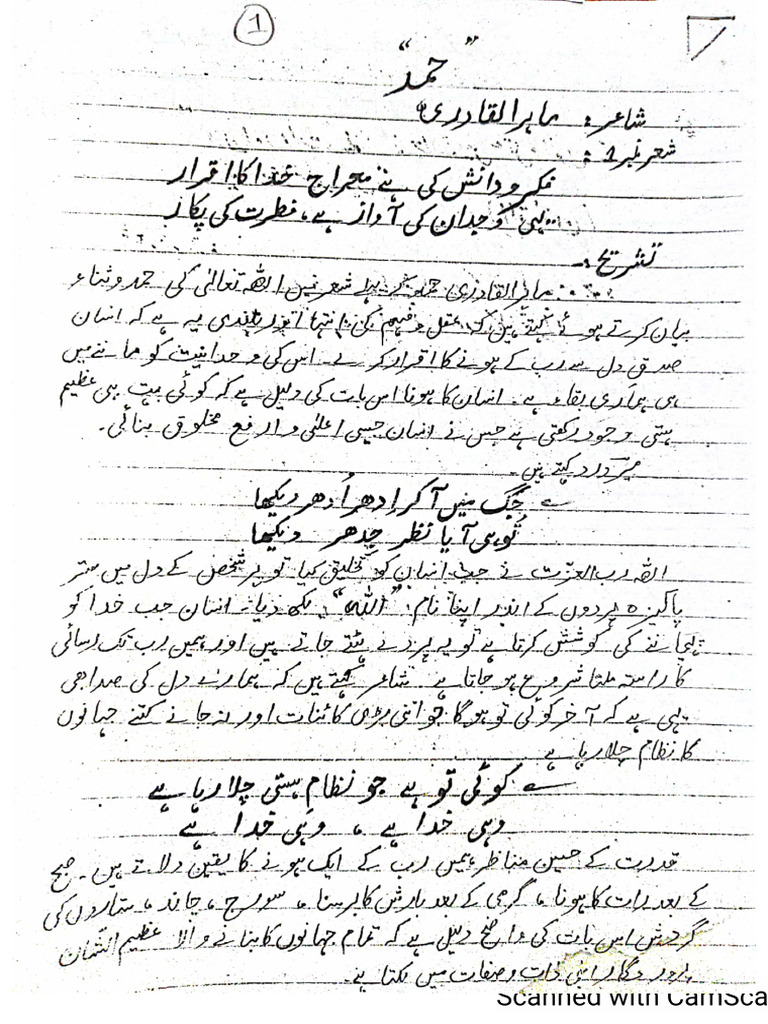 1
"حمد"
شاعر: ماہر القادری
شعر نمبر 1:
فکر و دانش کی ہے معراج خدا کا اقرار
یہی وجدان کی آواز ہے، فطرت کی پکار
تشریح:-
ماہر القادری حمد کے پہلے شعر میں اللہ تعالٰی کی حمد و ثناء
بیان کرتے ہوئے کہتے ہیں کہ عقل و فہم کی انتہا اور بلندی یہ ہے کہ انسان
صدق دل سے رب کے ہونے کا اقرار کر لے۔ اس کی وحدانیت کو ماننے میں
ہی ہماری بقاء ہے۔ انسان کا ہونا اس بات کی دلیل ہے کہ کوئی بہت ہی عظیم
ہستی وجود رکھتی ہے جس نے انسان جیسی اعلٰی و ارفع مخلوق بنائی۔
میر درد کہتے ہیں۔
؎ جگ میں آ کر اِدھر اُدھر دیکھا
تُو ہی آیا نظر جِدھر دیکھا
اللہ رب العزت نے جب انسان کو تخلیق کیا تو ہر شخص کے دل میں ستر
پاکیزہ پردوں کے اندر اپنا نام "اللہ" لکھ دیا۔ انسان جب خدا کو
پہچاننے کی کوشش کرتا ہے تو یہ پردے ہٹتے جاتے ہیں اور ہمیں رب تک رسائی
کا راستہ ملنا شروع ہو جاتا ہے۔ شاعر کہتے ہیں کہ ہمارے دل کی صدا بھی
یہی ہے کہ آخر کوئی تو ہو گا جو اتنی بڑی کائنات اور نہ جانے کتنے جہانوں
کا نظام چلا رہا ہے
؎ کوئی تو ہے جو نظامِ ہستی چلا رہا ہے
وہی خدا ہے ، وہی خدا ہے
قدرت کے حسین مناظر ہمیں رب کے ایک ہونے کا یقین دلاتے ہیں۔ صبح
کے بعد رات کا ہونا، گرمی کے بعد بارش کا برسنا، سورج، چاند، ستاروں کی
گردش اس بات کی واضح دلیل ہے کہ تمام جہانوں کا بنانے والا عظیم الشان
پروردگار اپنی ذات و صفات میں یکتا ہے۔
Scanned with CamSca